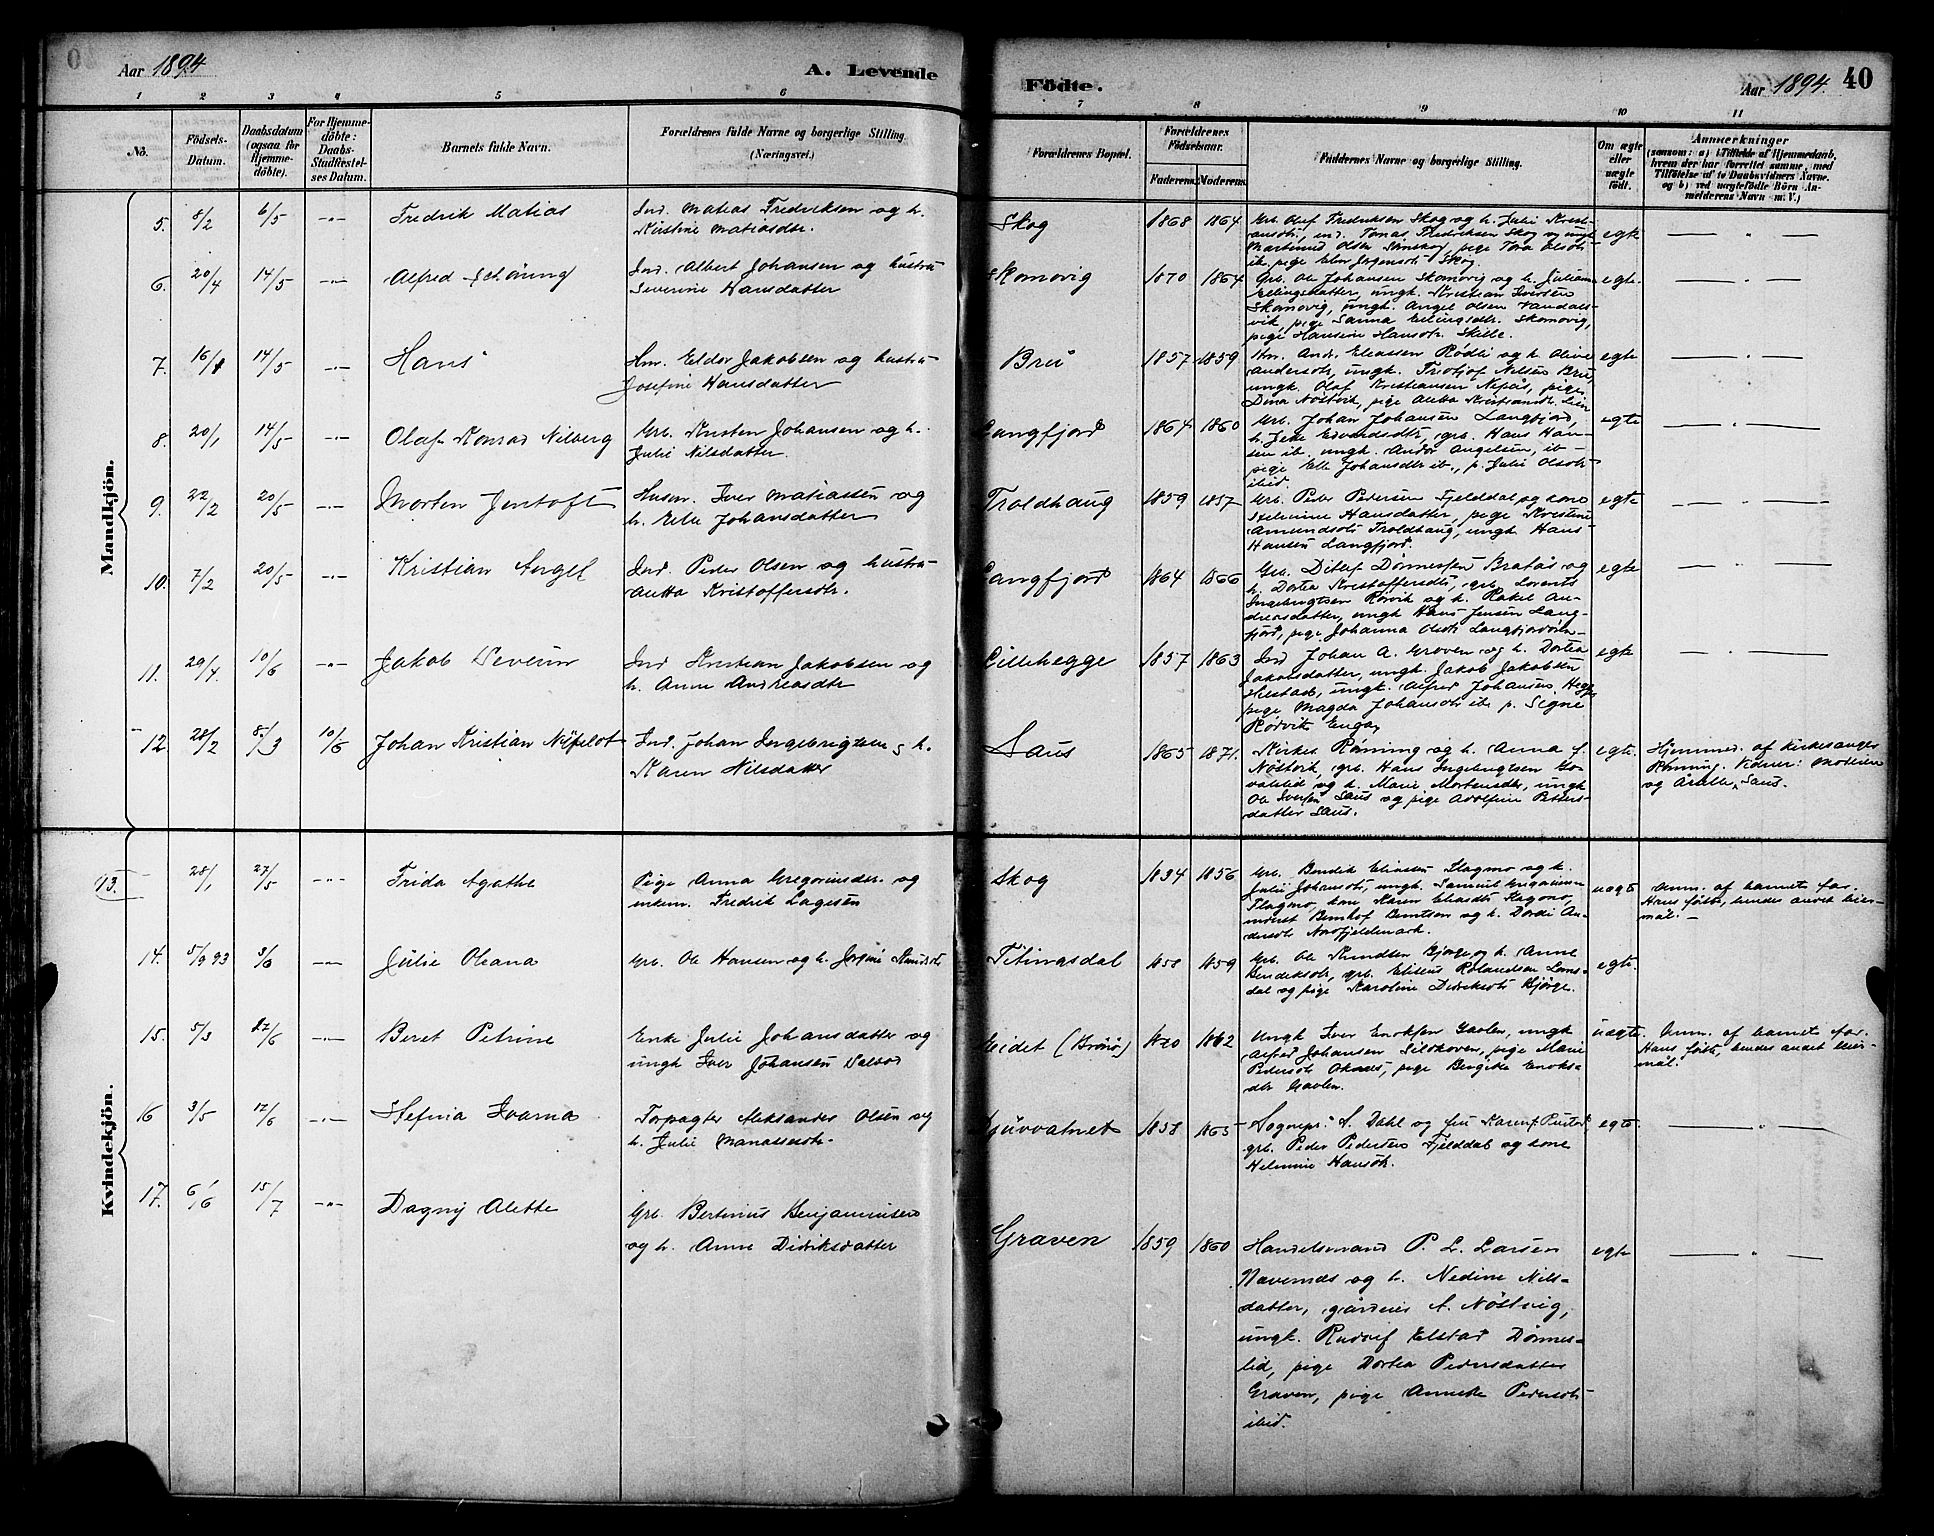 Aar 1894
A. Levende
Födte.
Aar 1894.
40
1 2 3 4 5 6 7 8 9 10 11
No.
Födsels-
Datum.
Daabsdatum
(ogsaa for
Hjemme-
döbte).
For Hjemme-
döbte:
Daabs-
Stadfæstel-
ses Datum.
Barnets fulde Navn.
Forældrenes fulde Navne og borgerlige Stilling.
(Næringsvei.)
Forældrenes Bopæl.
Forældrenes
Födselsaar.
Faderens. Moderens.
Faddernes Navne og borgerlige Stilling.
Om ægte
eller
uægte
födt.
Anmerkninger
(saasom: a) i Tilfælde af Hjemmedaab,
hvem der har forrettet samme, med
Tilföielse af to Daabsvidners Navne,
og b) ved uægtefödte Börn An-
melderens Navn m. V.)
Mandkjön.
5. 8/2 6/5 -"- Fredrik Matias
Ind. Matias Fredriksen og h.
Kristine Matiasdtr.
Skog 1868 1864
Grb. Olaf Fredriksen Skog og h. Julie Krist-
iansdtr, ind. Tomas Fredriksen Skog og ungk.
egte — " —
6. 20/4 14/5 -"- Alfred
Ind. Albert Johansen og hustru
Severine Hansdatter
Skomovig 1870 1864
Grb. Ole Johansen Skomovig og h. Juliane
Ellingsdatter, ungk. Kristian Iversen
Skomovig, ungk. Angel Olsen Vandals-
vik, pige Sanna Ellingsdtr. Skomovig,
pige Hansine Hansdtr Skille.
egte. — " —
7. 16/1 14/5 -"- Hans
Hm. Eldor Jakobsen og hustru
Josefine Hansdatter
Bru 1857 1859
Hm. Andr. Eliassen Rødli og h. Olive
Andersdtr, ungk. Fridtjof Nilsen Bru,
ungk. Olaf Kristiansen Nepås, pige
Dina Nøstvik, pige
egte — " —
8. 20/1 14/5 -"- Olaf Konrad Nilberg
Grb. Kristen Johansen og h.
Julie Nilsdatter.
Langfjord 1864 1860
Grb. Johan Johansen Langfjord,
h. Jette Edvardsdtr, grb. Hans Han-
sen ib. ungk. Andor Angelsen, ib -
pige Elle Johansdtr ib., p. Julie Olsdtr
ibid.
egte — " —
9. 22/2 20/5 -"- Morten Jentoft
Husm. Iver Matiassen og
h. Ellen Johansdatter
Troldhaug 1859 1857
Grb. Peder Pedersen Fjelddal og kone
Helmine Hansdatter, pige Kristine
Amundsdtr Troldhaug, ungk. Hans
Hansen Langfjord.
egte — " —
10. 7/2 20/5 -"- Kristian Angel
Ind. Peder Olsen og hustru
Anetta Kristoffersdtr.
Langfjord 1864 1866
Grb. Ditlef Dønnesen Bratås og
h. Dortea Kristoffersdtr, grb. Lorents
Ingebrigtsen Rørvik og h. Rakel An-
dreasdatter, ungk Hans Jensen Lang-
fjord, pige Johanna Olsdtr Langfjordøren -
egte — " —
11. 29/4. 10/6 -"- Jakob Severin
Ind Kristian Jakobsen og
h. Anne Andreasdtr
Lillehegge 1857 1863
Ind Johan A. Groven og h. Dortea
Jakobsdatter, ungk. Jakob Jakobsen
Hilstad, ungk. Alfred Johansen Hegge
pige Magda Johansdtr ib. p. Signe
Rørvik Enga,
egte — " —
12. 28/2 8/3 10/6 Johan Kristian Nüfeldt
Ind. Johan Ingebrigtsen g h.
Karen Nilsdatter
Saus 1865 1871.
Kirkes. Rønning og h. Anna f.
Nøstvik, grb. Hans Ingebrigtsen
og h. Marie Mortensdtr, ungk
Ole Iversen Saus og pige Adolfine Peters-
datter Saus.
egte.
Hjemmed. af kirkesanger
Rønning. Vidner: Moderen
og Saus.
Kvindekjön.
13. 28/1 27/5 -"- Frida Agathe
Pige Anna Gregoriusdtr. og
enkem. Fredrik Lagesen
Skog 1834 1856
Grb. Bendik Eliasen Flagmo og h.
Julie Johansdtr, ungk. Samuel
Flagmo, kone Karen Eliasdtr Flagmo,
Bernhof Berntsen og h. Dordi An-
dersdtr Nordfjeldmark.
uegte
Anm. af barnets far.
Hans første, hendes andet leier-
mål. -
14. 5/9 93 3/6 -"- Julie Oleana
Grb. Ole Hansen og h. Jørgine Knudsdtr
Titingsdal 1858 1859
Grb. Ole Knudtsen Bjørge og h. Anne
Hendriksdtr, grb. Elisæus Rolandsen Lams-
dal og pige Karoline Didriksdtr Bjørge.
egte.
15. 5/3 17/6 -"- Beret Petrine
Enke Julie Johansdatter og
ungk Iver Johansen Dalbod
Eidet (Brønø) 1870 1862
Ungk Iver Enoksen Gaolen, ungk
Alfred Johansen Sildhoven, pige Marie
Pedersdtr Oksnes, pige Bergitte Enoks-
dtr Gaolen.
uægte
Anm. af barnets far.
Hans første, hendes andet leier-
mål.
16 3/5 17/6 -"- Stefina Ivarna
Forpagter Aleksander Olsen og
h. Julie Manassesdtr.
Ljusvatnet 1858 1865
Sognepr. A. Dahl og fru Karen f. Rustad
grb. Peder Pedersen Fjelddal og kone
Helmine Hansdtr.
egte — " —
17. 6/6 15/7 -"- Dagny Alette
Grb. Bertinius Benjaminsen
og h. Anne Didriksdatter
Graven 1859 1860
Handelsmand P. L. Larsen
Nævernes og h. Nedine Nils-
datter, gårdeier A. Nøstvig,
ungk. Rudolf Elstad Dønnes-
lid, pige Dortea Pedersdatter
Graven, pige Annette Pedersdtr
ibid.
egte — " —